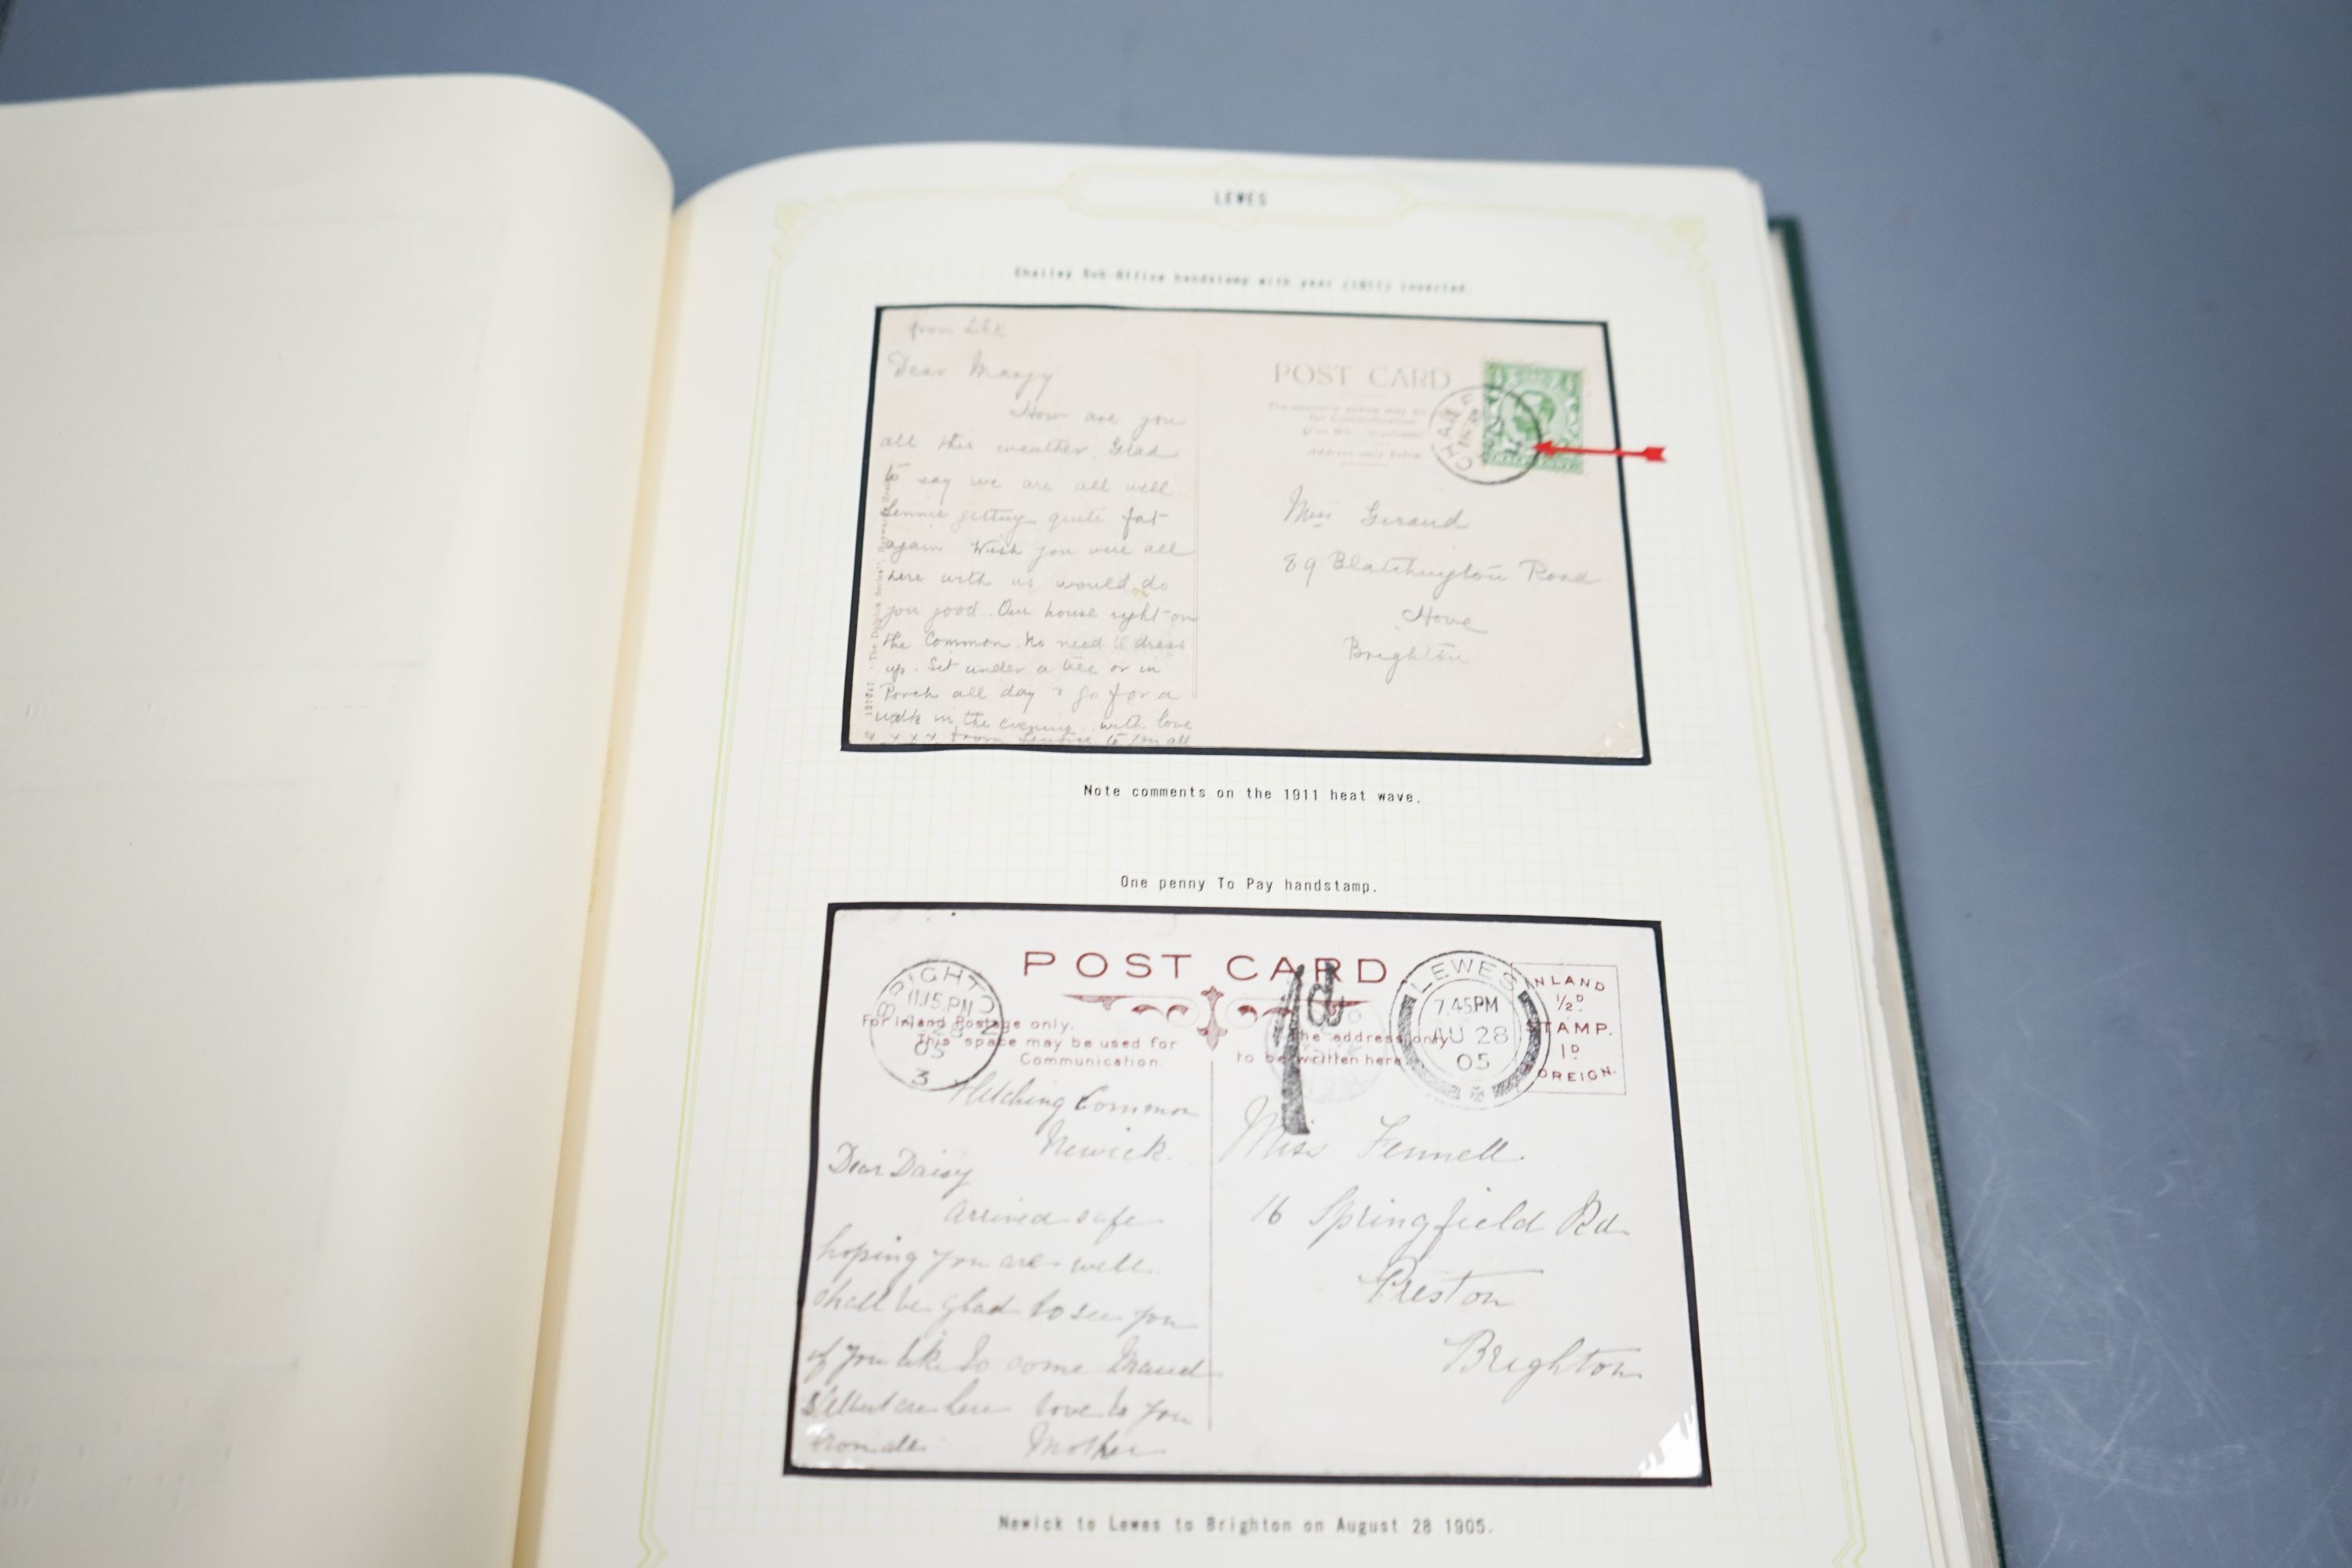 LEWES
Chailey Sub-Office handstamp with year (1911) inverted.
from
Dear Margy
How are you
all this weather. Glad
to say we are all well
Lennie getting quite fat
again Wish you were all
here with us would do
you good. Our house right on
the Common. No need to dress
up. Sit under a tree or in
Porch all day & go for a
walk in the evening. with love
x x x x from Lennie to you all
"The Dolphin Series",
POST CARD
address only below
CHAILEY
Miss Geraud
89 Blatchington Road
Hove
Brighton
Note comments on the 1911 heat wave.
One penny To Pay handstamp.
POST CARD
BRIGHTON
11.15 PM
05
3
1d
LEWES
7.45PM
AU 28
05
INLAND
½D
STAMP.
1D
FOREIGN.
For Inland Postage only.
This space may be used for
Communication.
The address only
to be written here.
Fletching Common
Newick.
Dear Daisy
Arrived safe
hoping you are well
shall be glad to see you
if you like to come Maud
& Albert are here love to you
from all Mother
Miss Fennell.
16 Springfield Rd.
Preston
Brighton
Newick to Lewes to Brighton on August 28 1905.